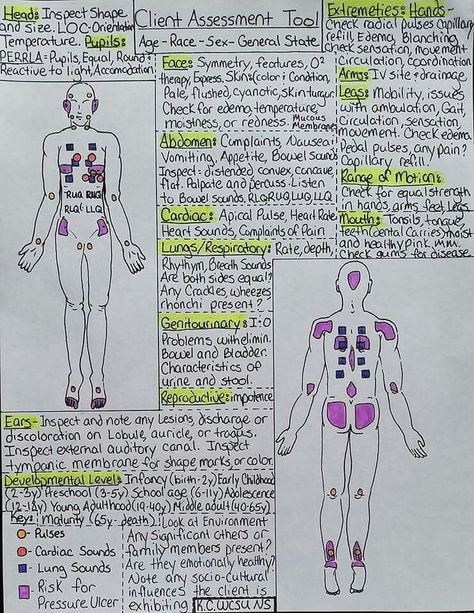 Head: Inspect Shape
and Size. L.O.C-Orientation
Temperature. Pupils:
PERRLA-Pupils, Equal, Round
Reactive to light, Accomodation
Client Assessment Tool
Age-Race-Sex-General State
Face: Symmetry, features, O²
therapy, Express. Skin: (color: Condition,
Pale, flushed, Cyanotic, Skin turgur.
Check for edema, temperature,
moistness, or redness. Mucous
Membranes
Abdomen: Complaints, Nausea:
Vomitting, Appetite, Bowel Sounds
Inspect: distended convex, concave,
flat. Palpate and percuss. Listen
to Bowel Sounds. RLQ RUQ LUQ LLQ
Cardiac: Apical Pulse, Heart Rate
Heart Sounds, Complaints of Pain
Lungs/Respiratory: Rate, depth,
Rhythm, Breath Sounds
Are both sides equal?
Any Crackles, wheezes
rhonchi present?
Genitourinary: I:O
Problems with elimin.
Bowel and Bladder.
Characteristics of
urine and stool.
Reproductive: impotence
Extremeties: Hands-
Check radial pulses Capillary
refill, Edema, Blanching,
Check sensation, movement
Circulation, coordination
Arms: IV site & drainage
Legs: Mobility, issues
with ambulation, Gait
Circulation, sensation,
movement. Check edema
Pedal pulses, any pain?
Capillary refill?
Range of Motion:
Check for equal strength
in hands, arms, feet, Legs
Mouth: Tonsils, tongue,
teeth (dental Carries) moist
and healthy pink, m.m.
Check gums for disease
RUQ
RLQ LLQ
Ears- Inspect and note any Lesions, discharge or
discoloration on Lobule, auricle, or tragus.
Inspect external auditory canal. Inspect
tympanic membrane for shape marks, or color.
Developmental Level: Infancy (birth-2y) Early Childhood
(2-3y) Preschool (3-5y) School age (6-11y) Adolescence
(12-18y) Young Adulthood (19-40y) Middle adult (40-65y)
Maturity (65y-death)
Key:
Pulses
Cardiac Sounds
Lung Sounds
Risk for
Pressure Ulcer
Look at Environment
Any Significant others or
family members present?
Are they emotionally healthy?
Note any socio-cultural
influences the client is
exhibiting K.C. WCSU NS